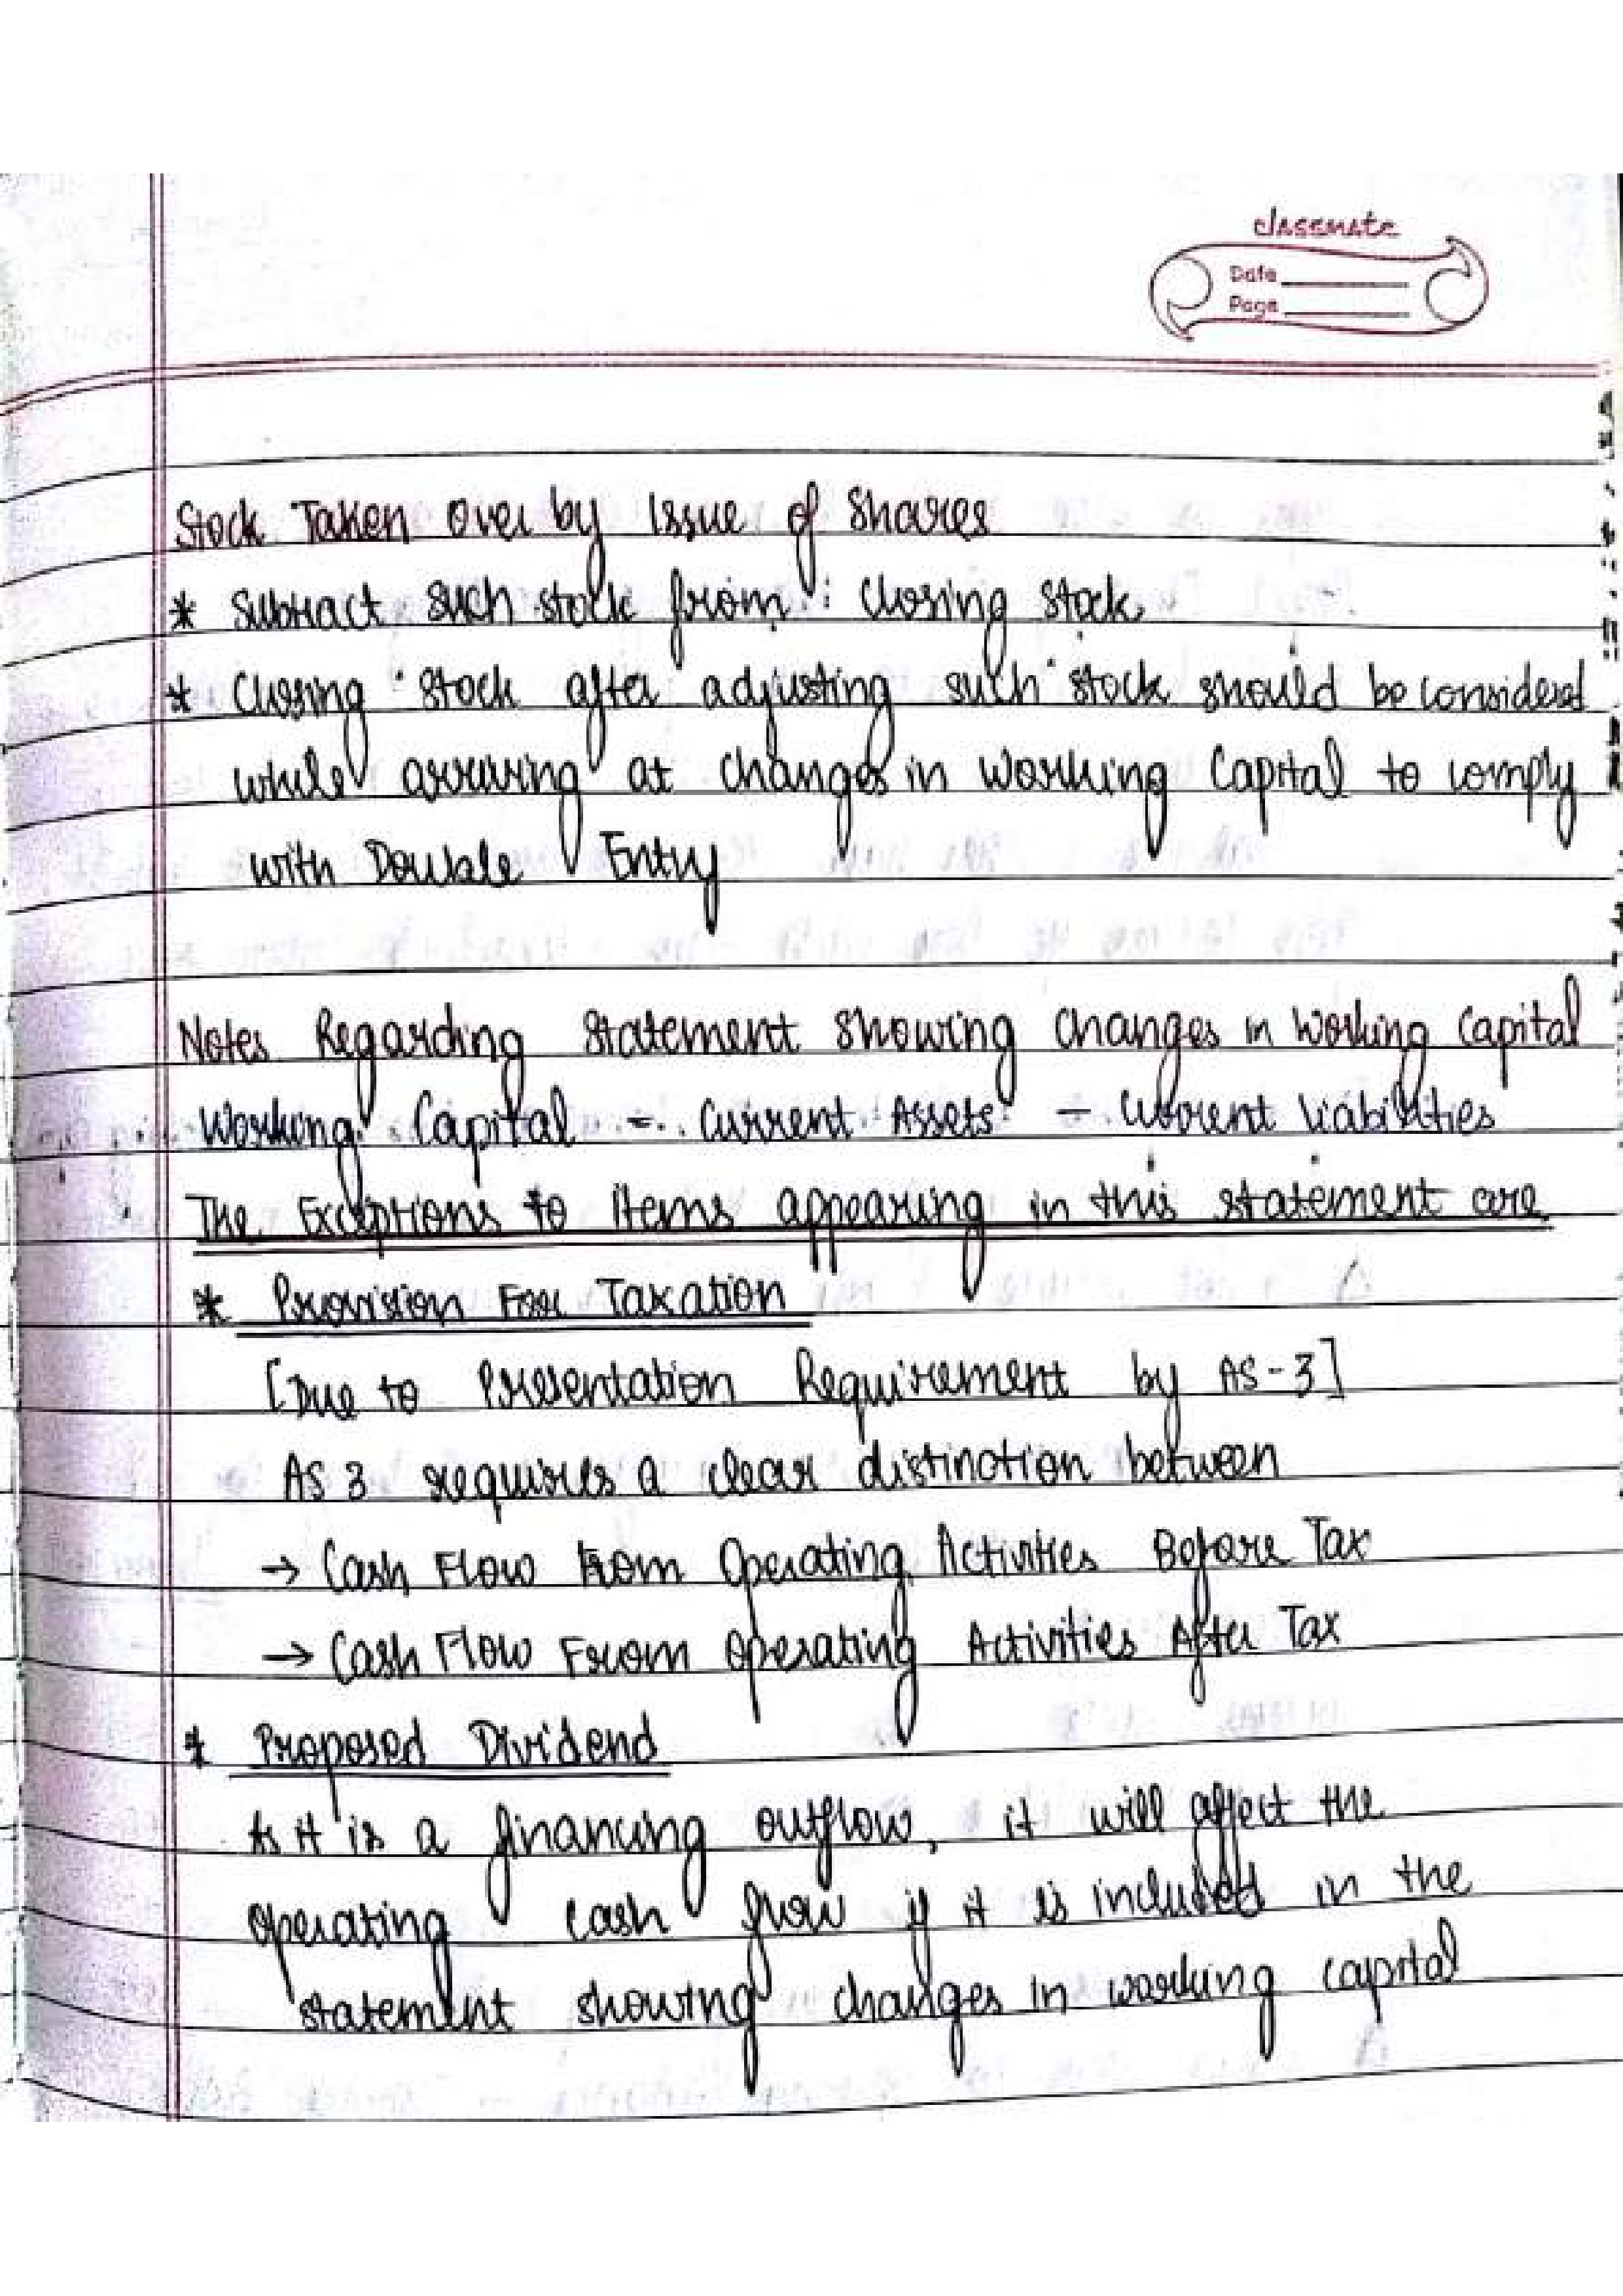 classmate
Date
Page
Stock Taken Over by Issue of Shares
* Subtract such stock from closing stock
* Closing stock after adjusting such stock should be considered
while arriving at changes in working Capital to comply
with Double Entry
Notes Regarding Statement showing changes in Working Capital
Working Capital = Current Assets - Current Liabilities
The Exceptions to items appearing in this statement are
* Provision For Taxation
[Due to Presentation Requirement by AS-3]
AS 3 requires a clear distinction between
→ Cash Flow From Operating Activities Before Tax
→ Cash Flow From Operating Activities After Tax
* Proposed Dividend
As it is a financing outflow, it will affect the
operating cash flow if it is included in the
statement showing changes in working capital